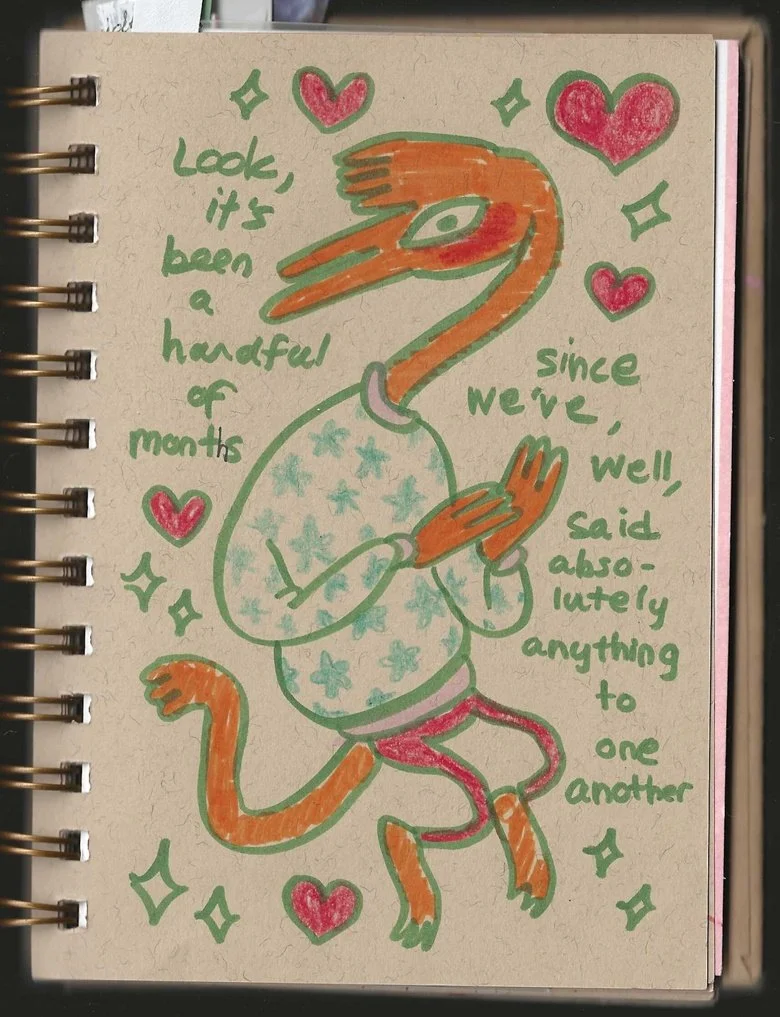 Look,
it's
been
a
handful
of
months
since
we've,
well,
said
abso-
lutely
anything
to
one
another